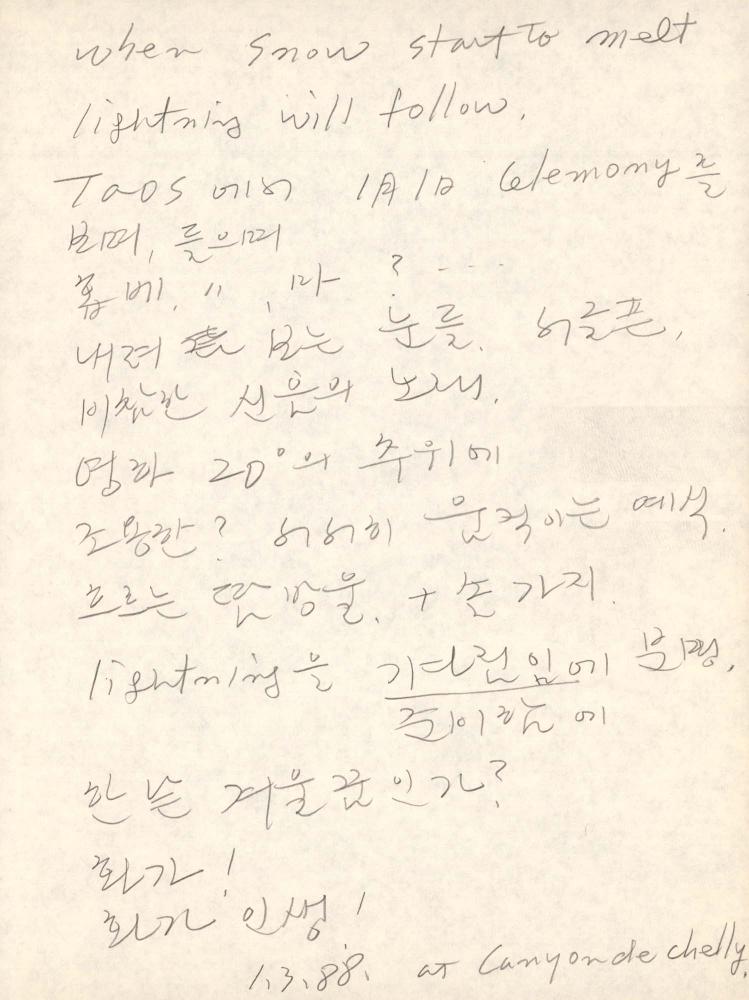 when snow start to melt
lightning will follow.
Taos에서 1月1日 Celemony를
보며, 들으며
흄베. 〃 , 마 ? - ...
내려 보는 눈들. 서글픈,
비참한 신음의 노래.
영하 20°의 추위에
조용한? 서서히 움직이는 예식.
흐르는 땀방울. + 솔가지.
lightning을 기다림임에 분명.
줄이함에
한 겨울 꿈인가?
화가!
화가 인생!
1.3.88. at Canyon de chelly.